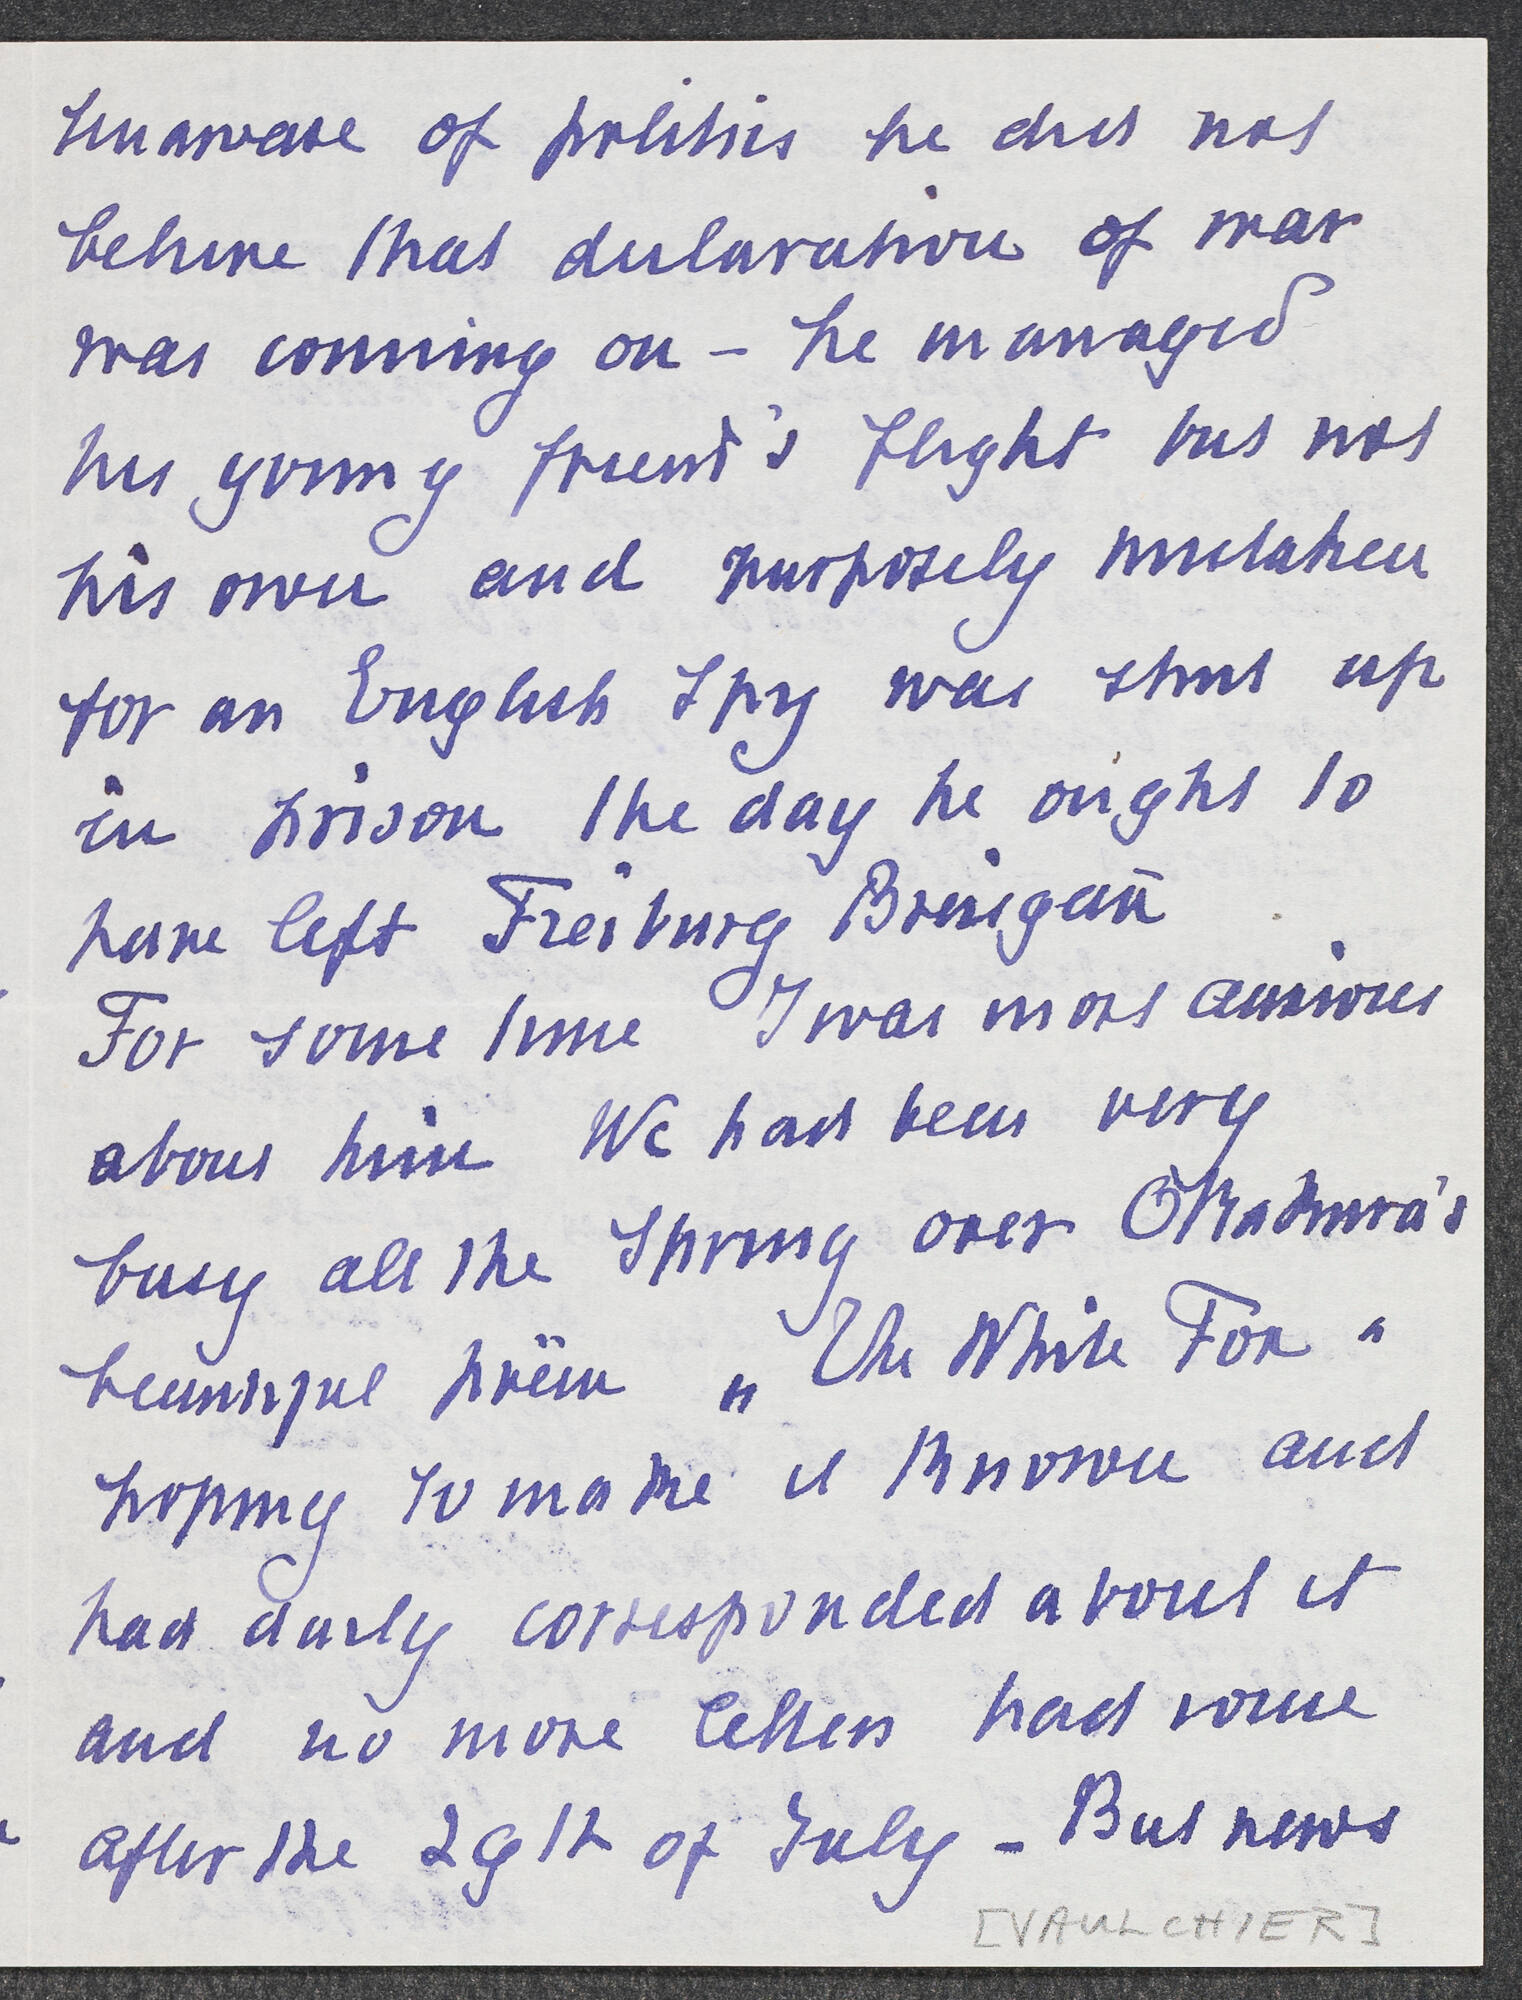 unaware of politics he did not
believe that declaration of war
was comming on – he managed
his young friend's flight but not
his own and purposely mistaken
for an English Spy was shut up
in prison the day he ought to
have left Freiburg Breisgau
For some time I was most anxious
about him We had been very
busy all the Spring over Okakura's
beautiful poëm „ The White Fox “
hoping to make it known and
had daily corresponded about it
and no more letters had come
after the 29th of July – But news
[VAULCHIER]